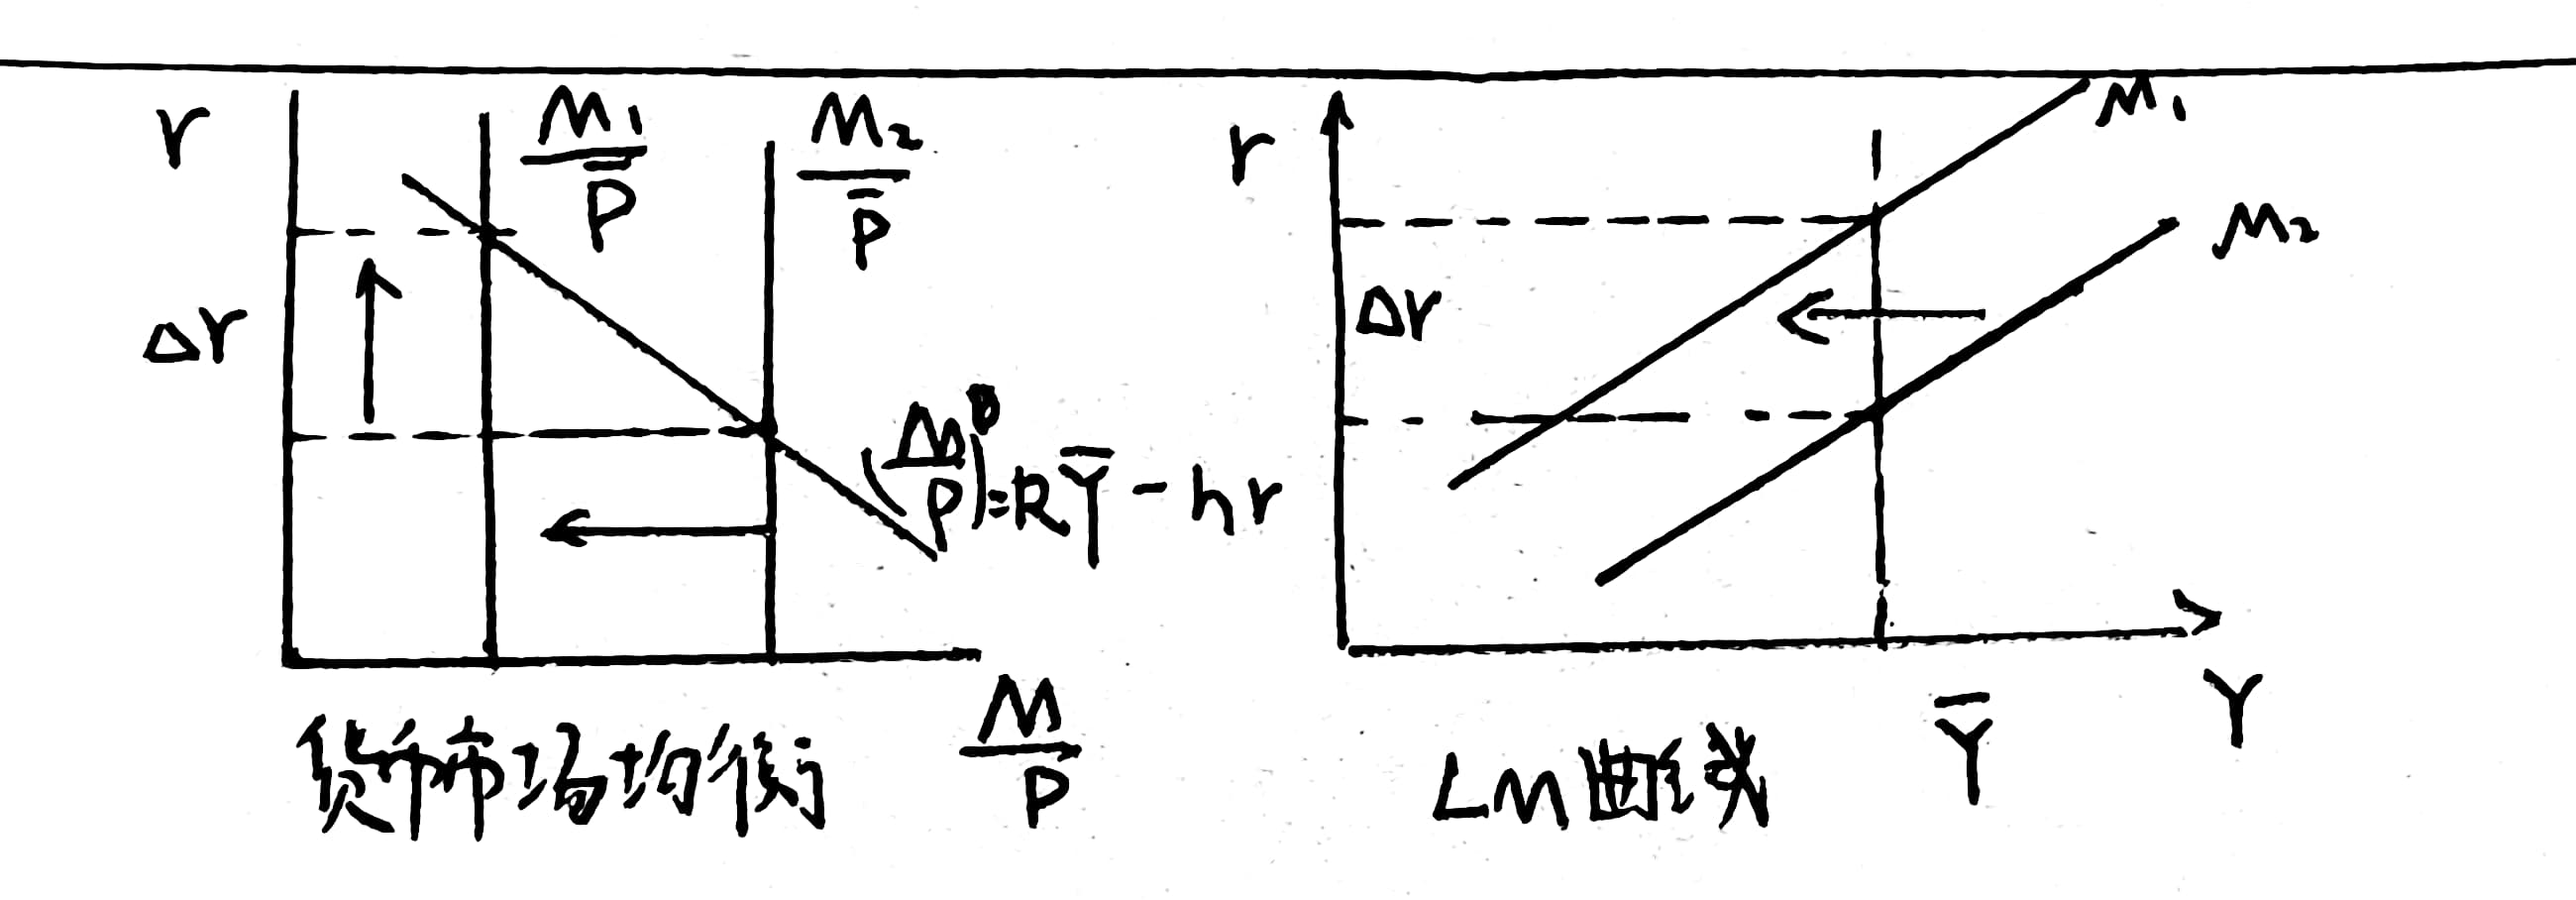 r
M₁/P̄
M₂/P̄
Δr
(M/P)ᴰ=kȲ-hr
M/P
货币市场均衡
r
M₁
M₂
Δr
Ȳ
Y
LM曲线